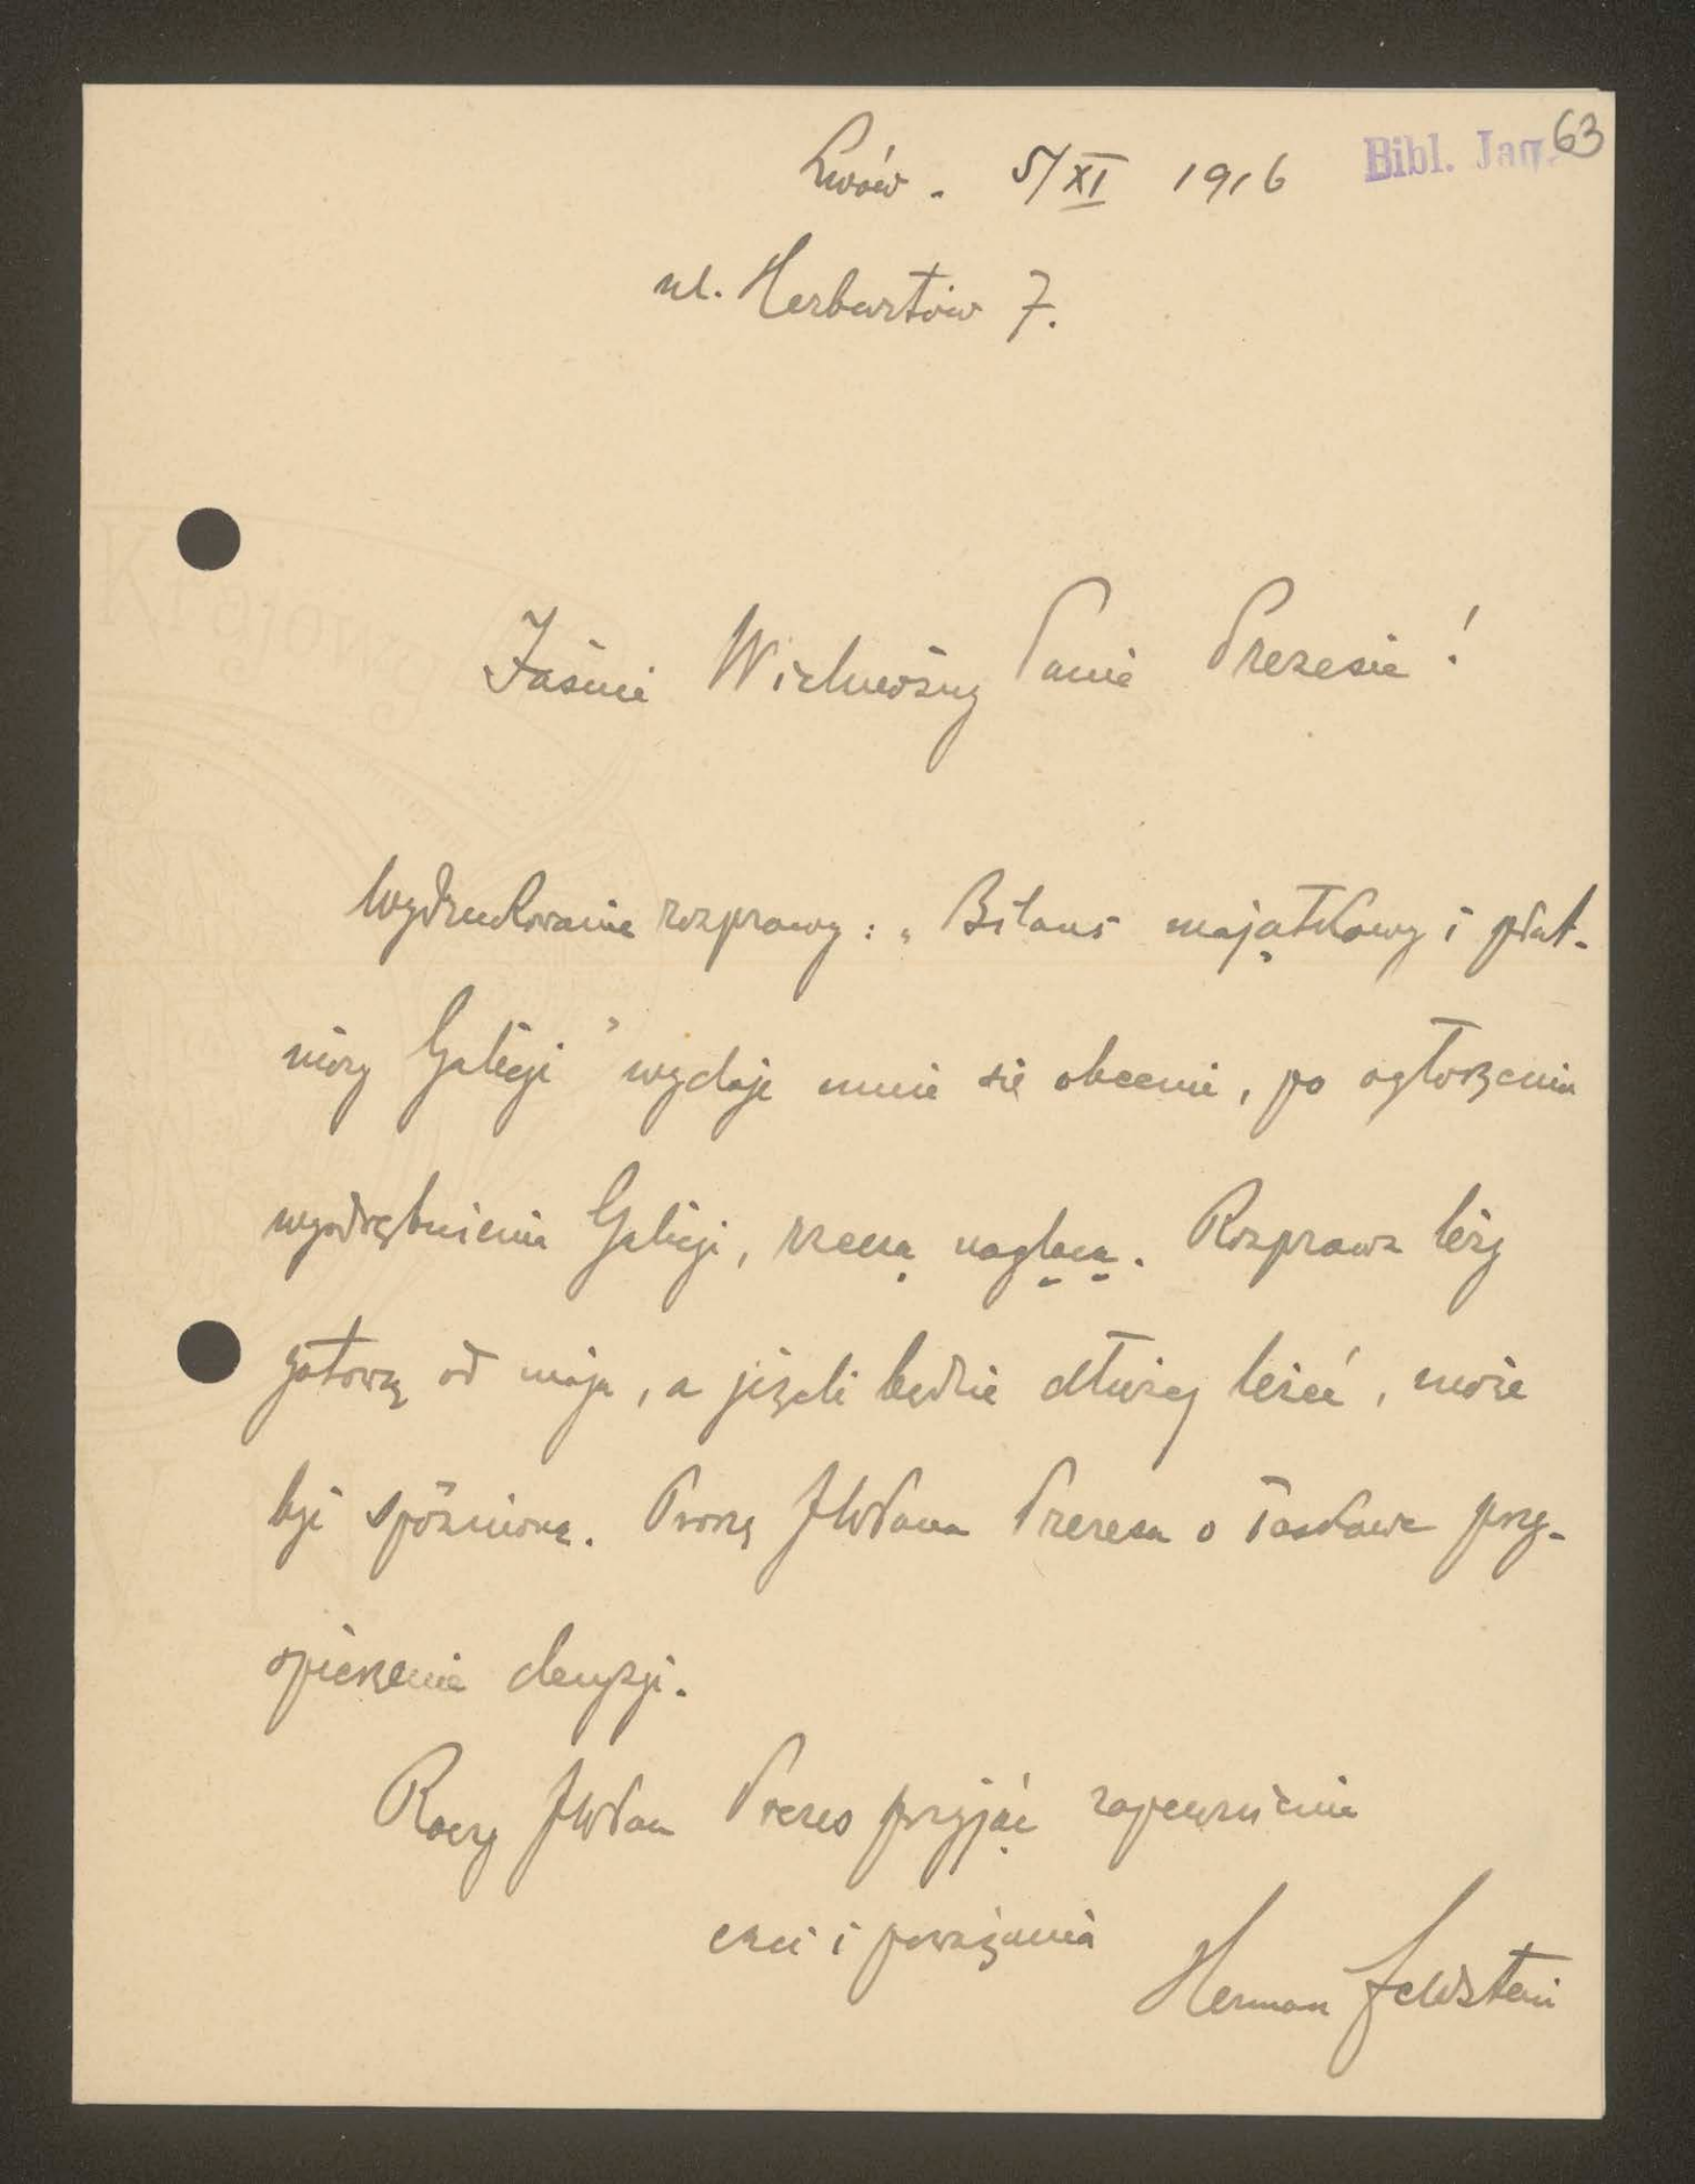 63
Bibl. Jag.
Lwów. 5/XI 1916
ul. Herburtów 7.
Jaśnie Wielmożny Panie Prezesie!
Wydrukowanie rozprawy: „Bilans majątkowy i płat-
niczy Galicji" wydaje mnie się obecnie, po ogłoszeniu
wyodrębnienia Galicji, rzeczą naglącą. Rozprawa leży
gotową od maja, a jeżeli będzie dłużej leżeć, może
być spóźnioną. Proszę JWPana Prezesa o łaskawe przy-
spieszenie decyzji.
Raczy JWPan Prezes przyjąć zapewnienie
czci i poważania
Herman Feldstein
Krajowy